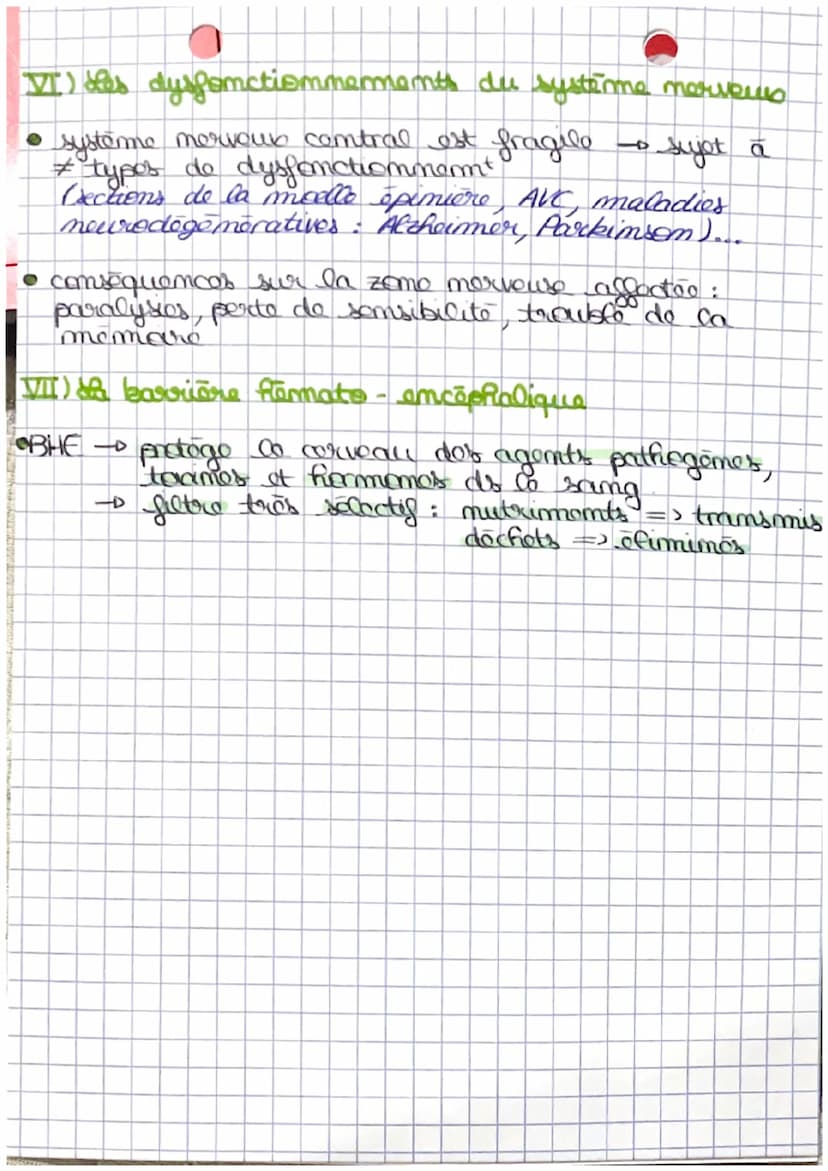 VI) Les dysfonctionnements du système nerveux
• système nerveux central est fragile → sujet à
≠ types de dysfonctionnemt
(lections de la moelle épinière, AVC, maladies
neurodégénératives : Alzheimer, Parkinson)...
• conséquences sur la zone nerveuse affectée :
paralysies, perte de sensibilité, trouble de la
mémoire
VII) La barrière hémato-encéphalique
• BHE → protège le cerveau des agents pathogènes,
toxines et hormones ds le sang
→ filtre très sélectif : nutriments => transmis
déchets => éliminés